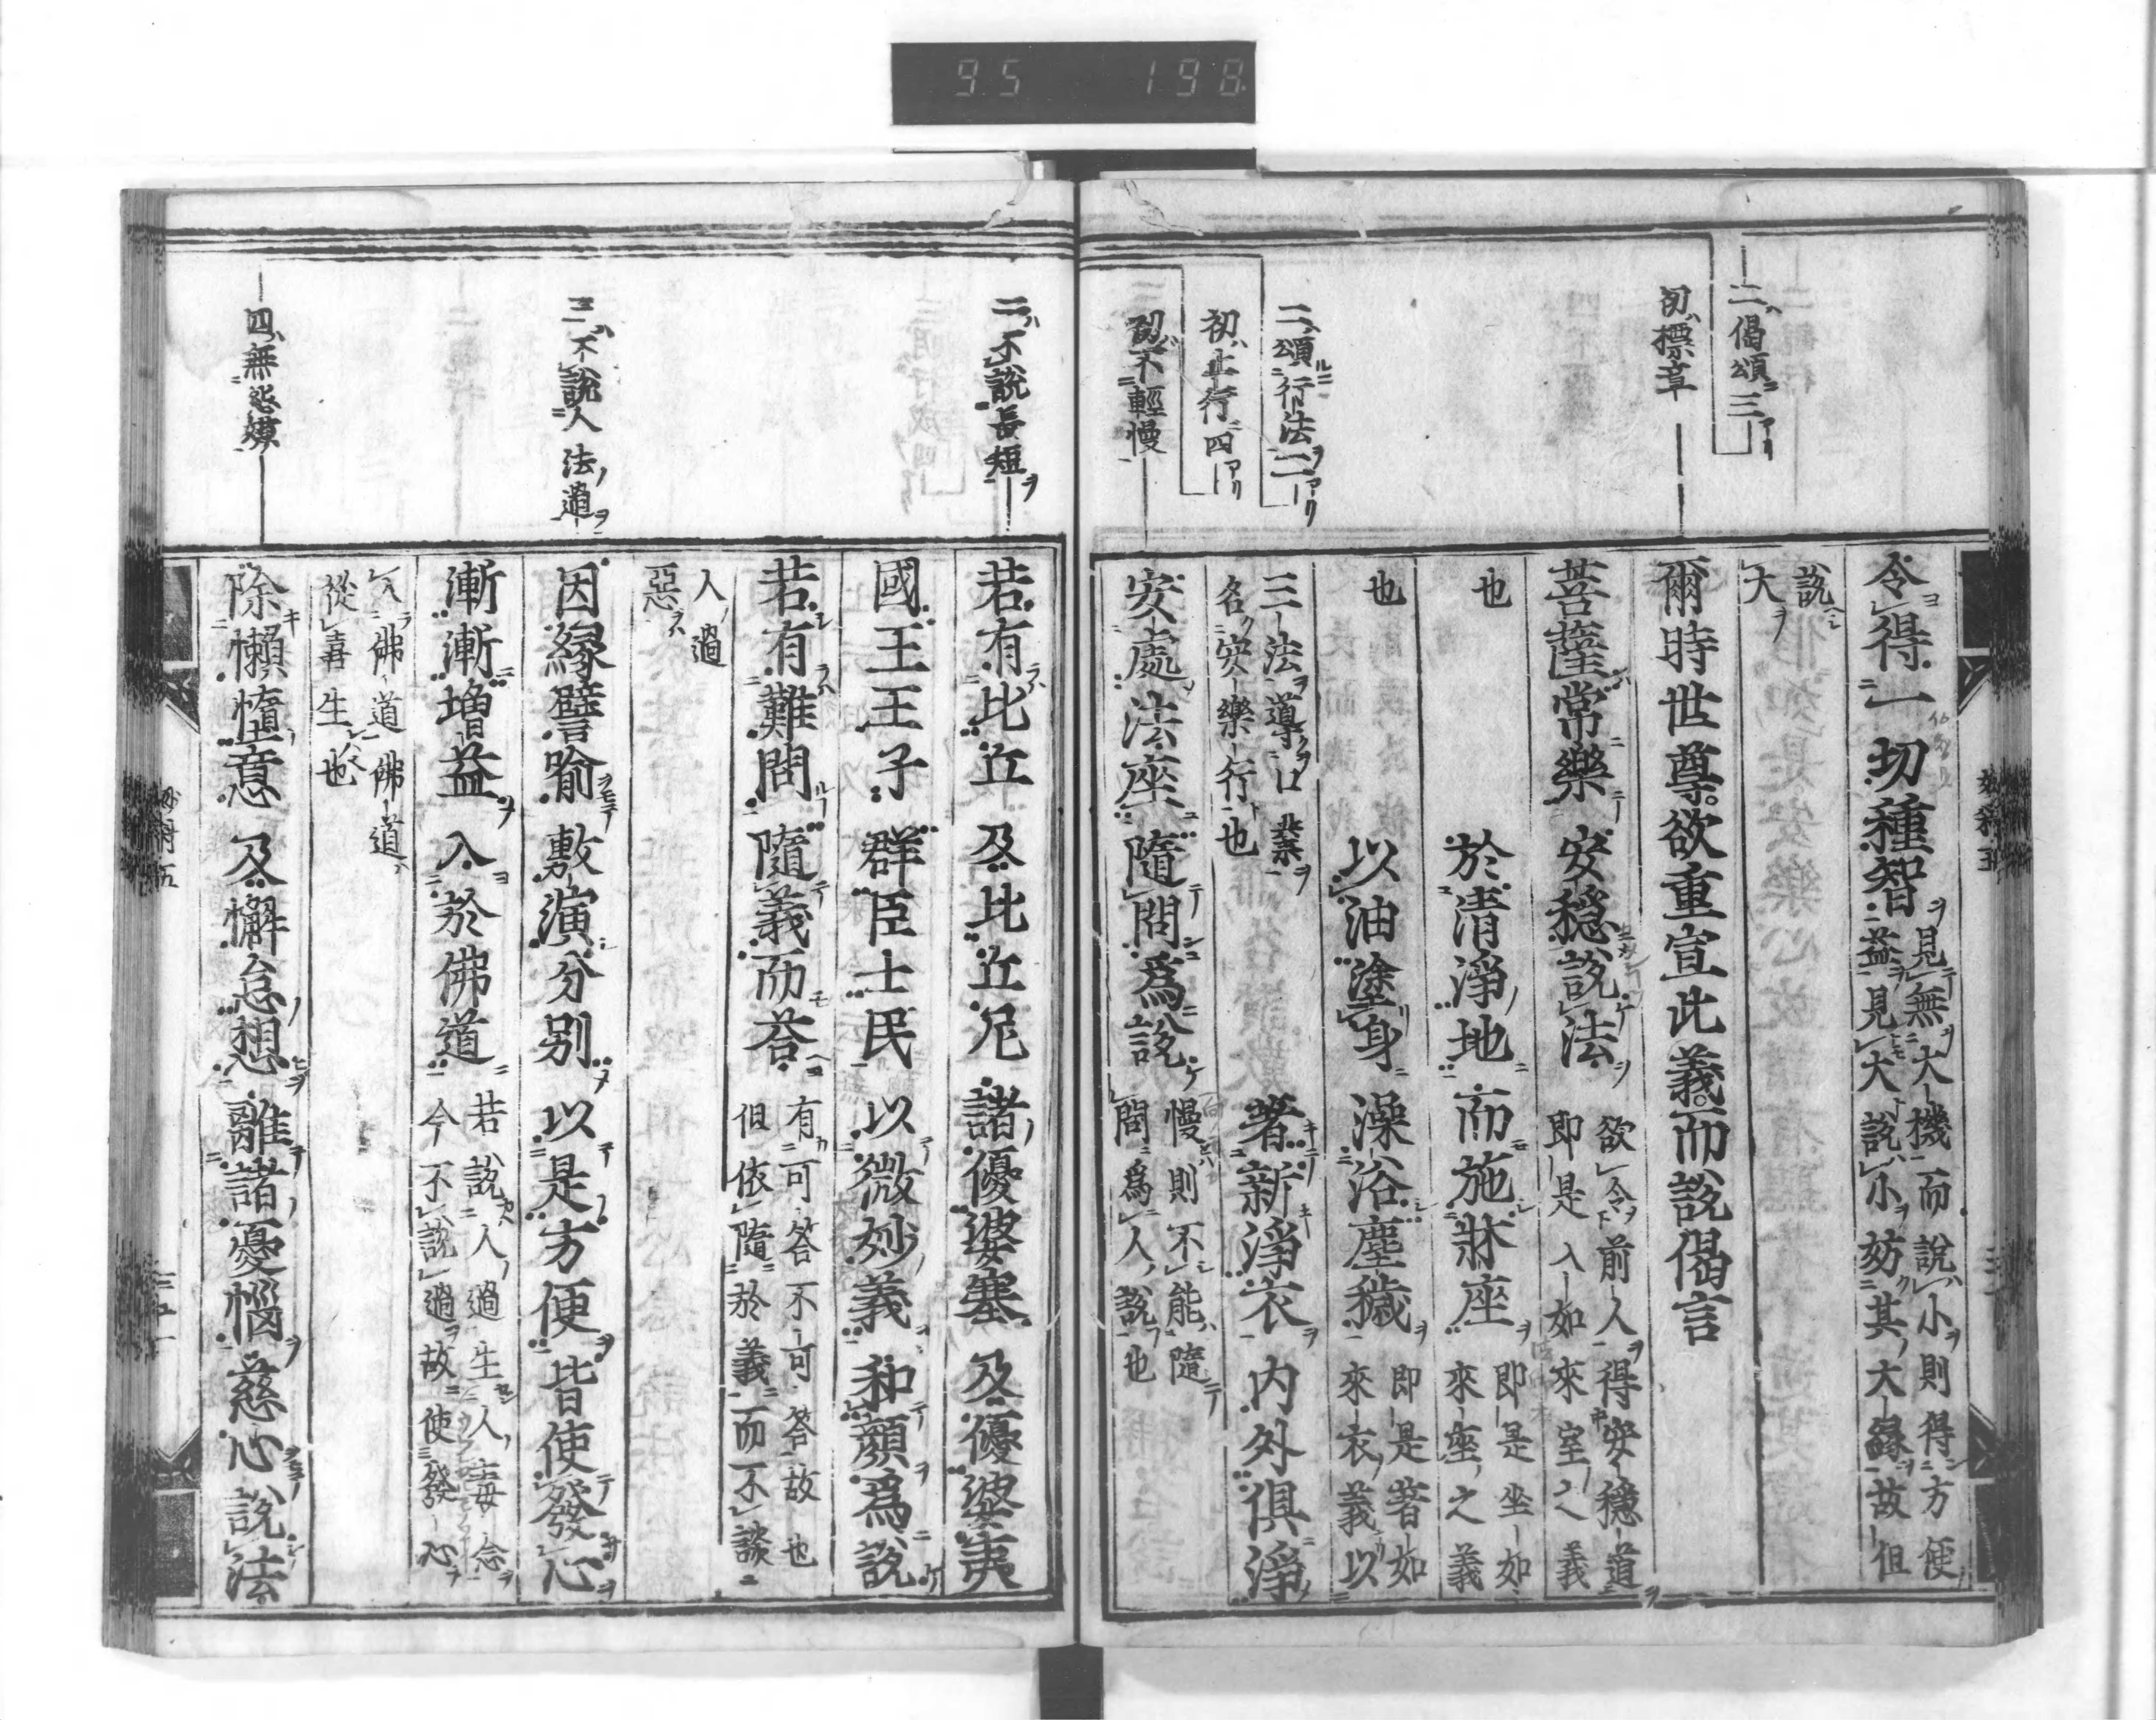 95 198
二偈頌三
初標章
二頌行法二
初止行四
初不輕慢
令得一切種智見無大機而說小則得方便
益見大說小妨其大緣故但
說
大
爾時世尊欲重宣此義而說偈言
菩薩常樂 安穩說法欲令前人得安穩道
即是入如來室之義
也 於清淨地 而施牀座即是坐如
來座之義
也 以油塗身 澡浴塵穢即是著如
來衣義以
三法導口業
名安樂行也 著新淨衣 內外俱淨
安處法座 隨問為說慢則不能隨
問為人說也
二不說長短
三不說人法過
四無怨嫌
若有比丘 及比丘尼 諸優婆塞 及優婆夷
國王王子 群臣士民 以微妙義 和顏為說
若有難問 隨義而荅有可答不可答故也
但依隨於義而不談
人過
惡
因緣譬喻 敷演分別 以是方便 皆使發心
漸漸增益 入於佛道若說人過生人毒念
今不說過故使發心
入佛道佛道
從喜生也
除懶惰意 及懈怠想 離諸憂惱 慈心說法